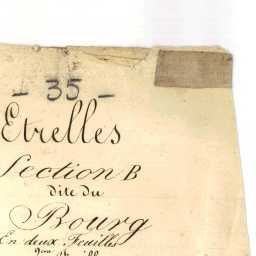 - 35 -
Etrelles
Section B
dite du
Bourg
En deux Feuilles